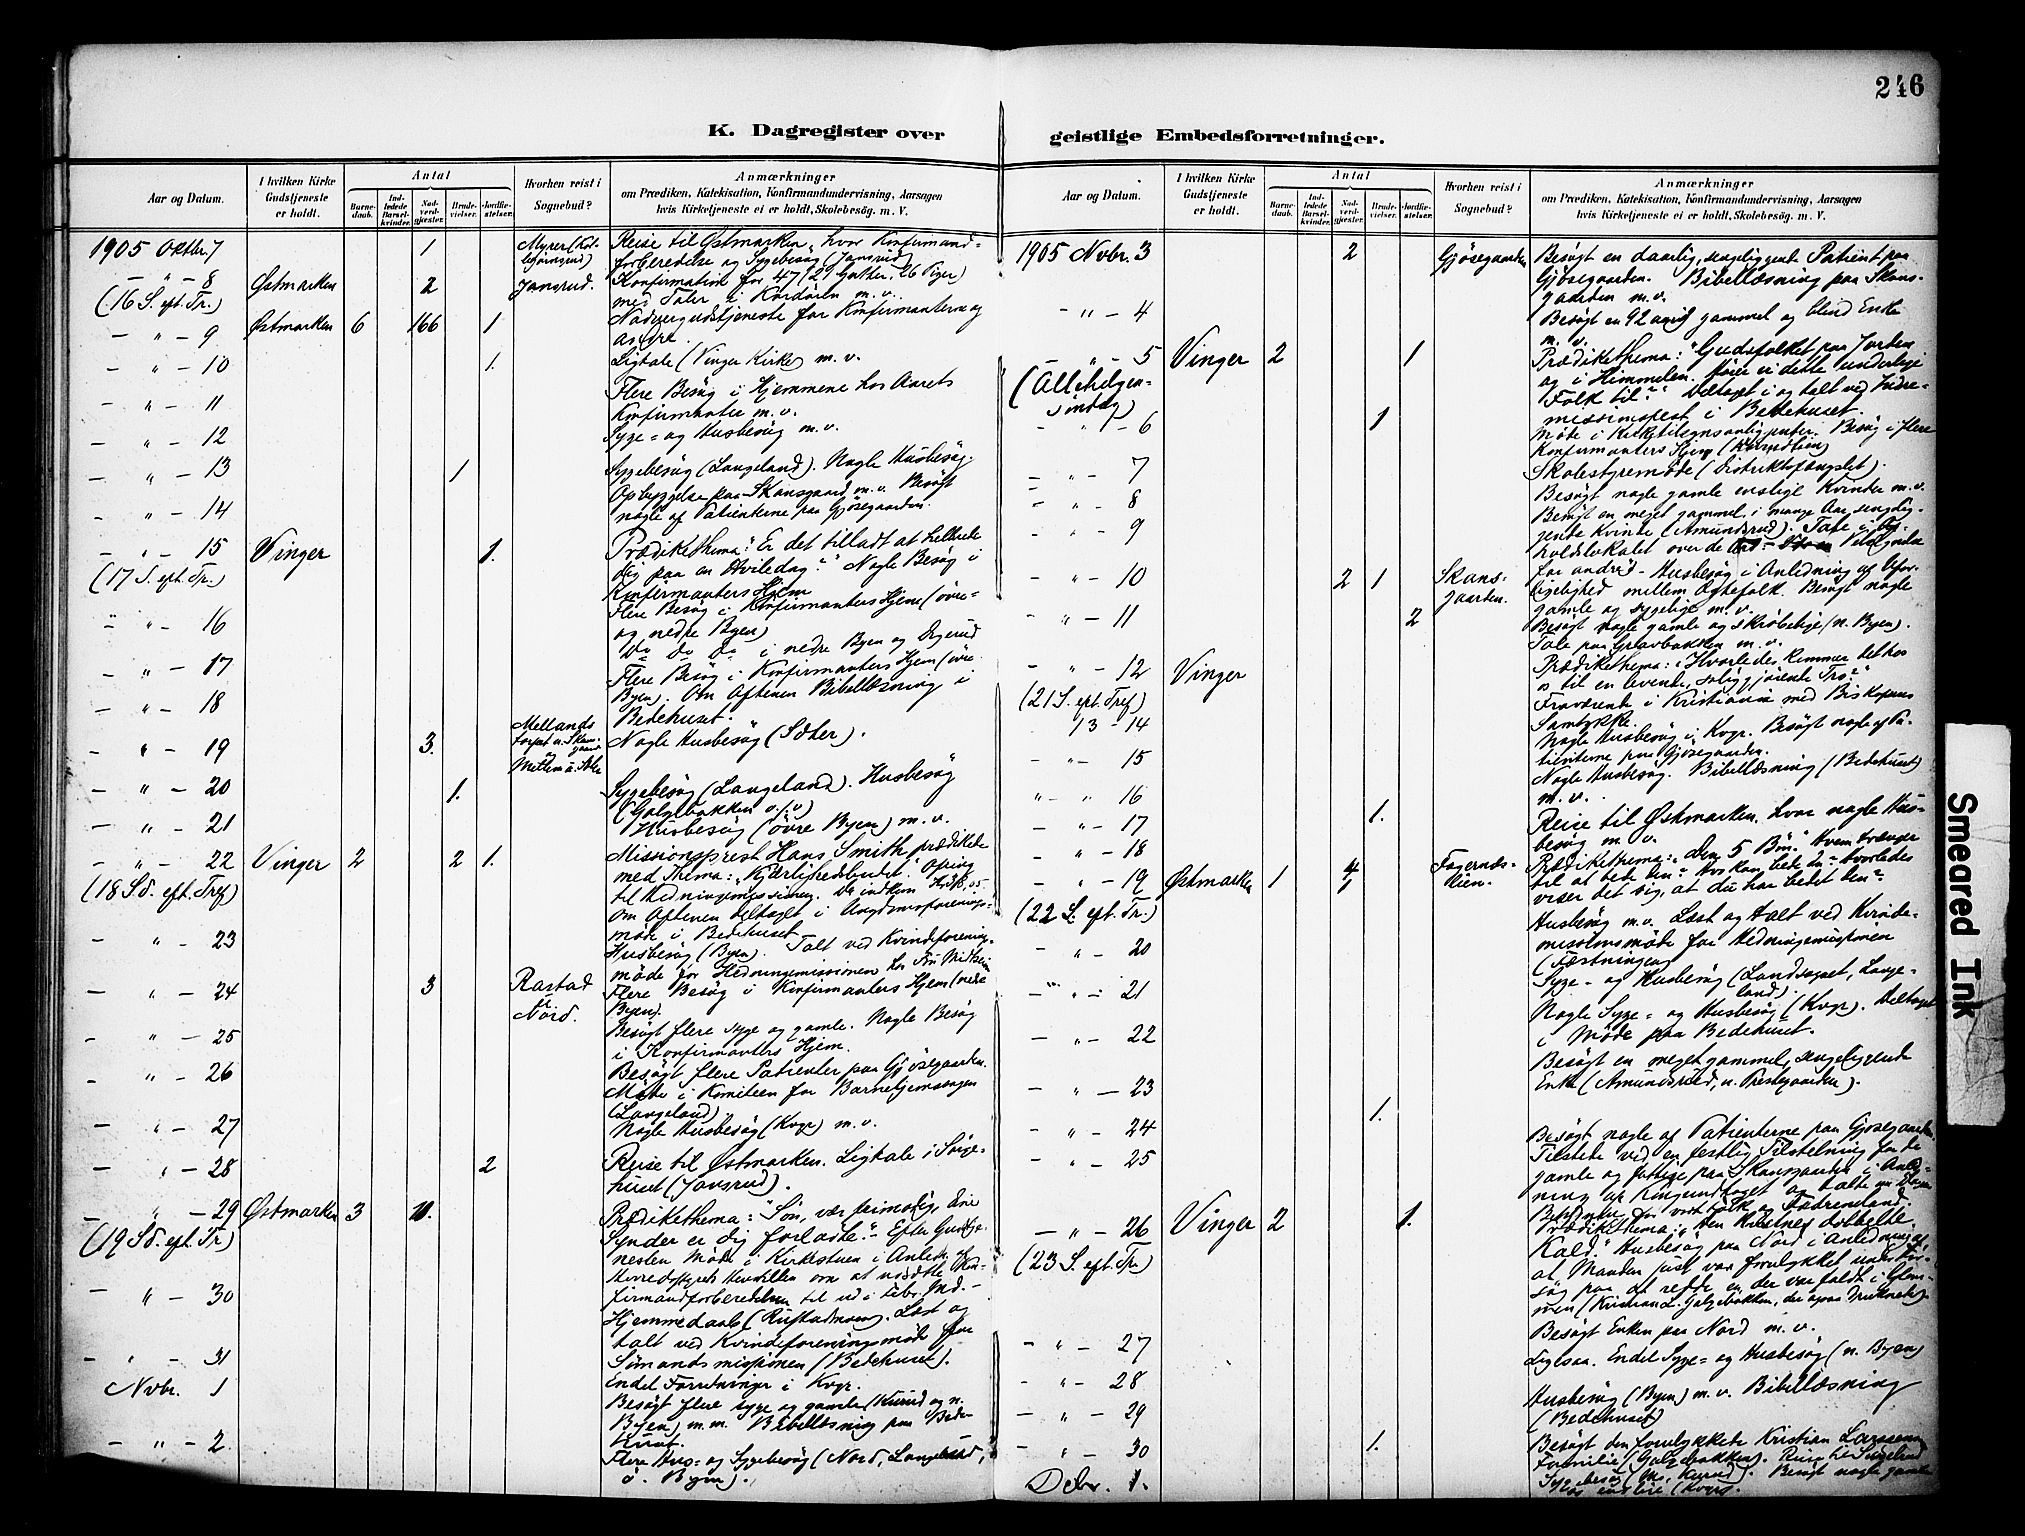 246
K. Dagregister over geistlige Embedsforretninger.
Aar og Datum.
I hvilken Kirke Gudstjeneste er holdt.
Antal
Barnedaab.
Indledede Barselkvinder.
Nadverdgjester.
Brudevielser.
Jordfæstelser.
Hvorhen reist i Sognebud?
Anmærkninger
om Prædiken, Katekisation, Konfirmandundervisning, Aarsagen
hvis Kirketjeneste ei er holdt, Skolebesög. m. V.
1905 Oktbr. 7 1 Reise til Østmarken, hvor Konfirmand=
forberedelse og Sygebesøg (Jansrud).
– " – 8 Østmarken 2 Jansrud. Konfirmation for 47 (21 Gutter, 26 Piger)
(16 S. eft. Tr.) med Taler i Kordøren m. v.
– " – 9 Østmarken 6 166 1 Nadvergudstjeneste for Konfirmanterne og
andre.
– " – 10 1. Ligtale (Vinger Kirke) m. v.
– " – 11 Flere Besøg i Hjemmene hos Aarets
Konfirmanter m. v.
– " – 12 Syge= og Husbesøg m. v.
– " – 13 1 Sygebesøg (Langeland). Nogle Husbesøg.
– " – 14 Opbyggelse paa Skansgaard m. v. Besøgt
nogle af Patienterne paa Gjøsegaarden.
– " – 15 Vinger 1. Prædikethema: "Er det tilladt at helbrede
(17 S. eft. Tr.) dig paa en Hviledag?" Nogle Besøg i
Konfirmanters Hjem
– " – 16 Flere Besøg i Konfirmanters Hjem (øvre
og nedre Byen)
– " – 17 Do Do Do i nedre Byen og
– " – 18 Flere Besøg i Konfirmanters Hjem (øvre
Byen). Om Aftenen Bibellæsning i
Bedehuset.
– " – 19 3. Nogle Husbesøg (Sæter).
– " – 20 1. Sygebesøg (Langeland). Husbesøg
(Galgebakken o. s. v.)
– " – 21 Husbesøg (øvre Byen) m. v.
– " – 22 Vinger 2 2 1. Missionsprest Hans Smith prædikede
(18 Sd. eft. Tref.) med Thema: "Kjærlighedsbudet". Ofring
til Hedningemissionen.
Om Aftenen deltaget i Ungdomsforenings=
møde i Bedehuset
– " – 23 Husbesøg (Byen). Talt ved Kvindeforenings=
møde for Hedningemissionen hos
– " – 24 3 Rastad u. Nord. Flere Besøg i Konfirmanters Hjem (nedre
Byen).
– " – 25 Besøgt flere syge og gamle. Nogle Besøg
i Konfirmanters Hjem.
– " – 26 Besøgt flere Patienter paa Gjøsegaarden.
Møde i Komiteen for Barnehjemssagen
(Langeland)
– " – 27 Nogle Husbesøg (Kvgr.) m. v.
– " – 28 2 Reise til Østmarken. Ligtale i Sørge=
huset (Jansrud).
– " – 29 Østmarken 3 11. Prædikethema: "Søn, vær frimodig, dine
(19 Sd. eft. Tr.) Synder er dig forladte." Efter Gudstje=
nesten Møde i Kirkestuen i Anledn. af
– " – 30 Hjemmedaab (Rustadmoen). Læst og
talt ved Kvindeforeningsmøde for
– " – 31 Sømandsmissionen (Bedehuset).
Novbr. 1 Endel Forretninger i Kvgr.
Besøgt flere syge og gamle (Kurud og n.
Byen) m. m. Bibellæsning paa Bede-
huset.
– " – 2 Flere Hus= og Sygebesøg (Nord, Langeland,
ø. Byen).
Aar og Datum.
I hvilken Kirke Gudstjeneste er holdt.
Antal
Barnedaab.
Indledede Barselkvinder.
Nadverdgjester.
Brudevielser.
Jordfæstelser.
Hvorhen reist i Sognebud?
Anmærkninger
om Prædiken, Katekisation, Konfirmandundervisning, Aarsagen
hvis Kirketjeneste ei er holdt, Skolebesög. m. V.
1905 Novbr. 3 2 Gjøsegaarden Besøgt en daarlig, sengliggende Patient paa
Gjøsegaarden. Bibellæsning paa Skans-
gaarden m. v.
– " – 4 Besøgt en 92 aarig gammel og blind Enke
m. v.
– " – 5 Vinger 2 1 Prædikethema: "Gudsfolket paa Jorden
(Allehelgen= og i Himmelen. Hører vi dette underlige
søndag) Folk til?" Deltaget i og talt ved Indre=
missionsfest i Bedehuset.
– " – 6 1 Møde i Kirketilsynsanliggender. Besøg i flere
Konfirmanters Hjem
– " – 7 Skolestyremøde (Distriktsfængslet).
– " – 8 Besøgt nogle gamle enslige Kvinder m. v.
– " – 9 Besøgt en meget gammel, i mange Aar senglig-
gende Kvinde (Amundsrud).
– " – 10 2 1 Skans-gaarden. Husbesøg i Anledning af
mellem Ægtefolk. Besøgt nogle
gamle og sygelige m. v.
– " – 11 2 Besøgt nogle gamle og skrøbelige (n. Byen).
Tale paa Gravbakken m. v.
– " – 12 Vinger Prædikethema: "Hvorledes kommer det hos
(21 S. eft. Tref.) os til en levende, saliggjørende Tro?"
13 – 14 Fraværende i Kristiania med Biskopens
Samtykke.
– " – 15 Nogle Husbesøg i Kvgr. Besøgt nogle af Pa-
tienterne paa Gjøsegaarden.
– " – 16 Nogle Husbesøg. Bibellæsning (Bedehuset)
m. v.
– " – 17 1. Reise til Østmarken, hvor nogle Hus-
– " – 18 besøg m. v.
– " – 19 Østmarken 1 4 Fagernæs-lien. Prædikethema: "Den 5 Bøn." Hvem trænger
(22 S. eft. Tr.) til at bede den? Hvo kan bede den? Hvorledes
viser det sig, at du har bedet den?
– " – 20 Husbesøg m. v. Læst og talt ved Kvinde=
missionsmøde for Hedningemissionen
(Fæstningen)
– " – 21 Syge= og Husbesøg (Landsognet, Lange=
land).
– " – 22 Nogle Syge= og Husbesøg (Kvgr.). Deltaget
i Møde paa Bedehuset.
– " – 23 Besøgt en meget gammel, sengeliggende
Enke (Amundsrud, u. Prestgaarden).
– " – 24 1. Besøgt nogle af Patienterne paa Gjøsegaarden.
– " – 25 Tilstede ved en festlig Tilstelning for de
gamle og fattige paa Skansgaarden i Anled-
ning af Kongeindtoget og talte
for vort Folk og Fædreland.
– " – 26 Vinger 2 1. Prædikethema: "Den Kristnes dobbelte
(23 S. eft. Tr.) Kald." Husbesøg paa Nord i Anledning af
at Manden just var forulykket under For-
søg paa at redde en, der var faldt i Glom-
men (Kristian L. Galgebakken, der ogsaa druknede).
– " – 27 Besøgt Enken paa Nord m. v.
– " – 28 Ligesaa. Endel Syge= og Husbesøg (n. Byen)
– " – 29 Husbesøg (Byen) m. v. Bibellæsning
(Bedehuset)
– " – 30 1. Besøgt den forulykkede Kristian Larssens
Familie (Galgebakken).
Debr. 1. Besøgt nogle gamle
Smeared Ink